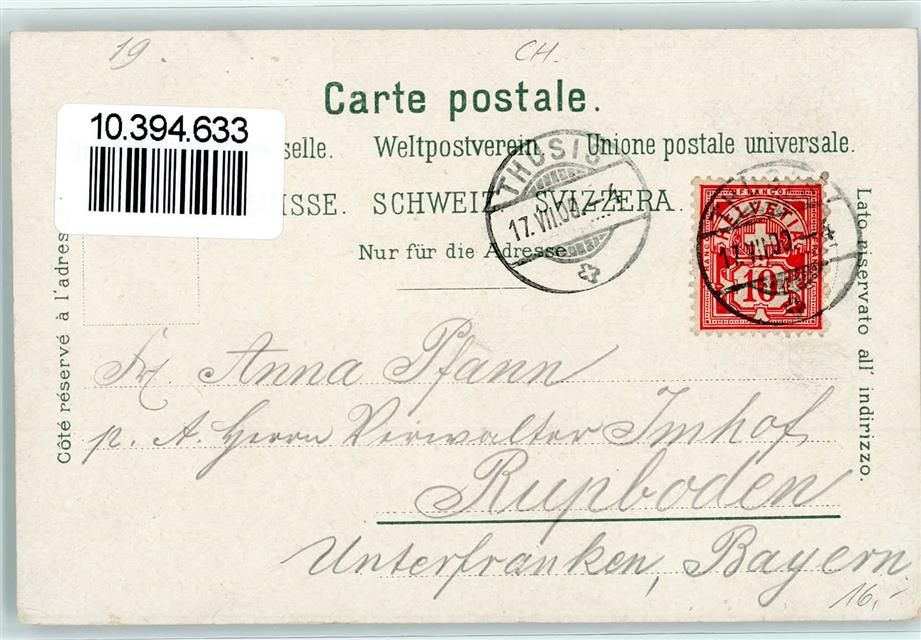 19 CH.
Carte postale.
10.394.633
selle. Weltpostverein. Unione postale universale.
ISSE. SCHWEIZ. SVIZZERA.
Nur für die Adresse
THUSIS
17.VII.
FRANCO
HELVETIA
10
Côté réservé à l'adres
Lato riservato all' indirizzo.
Fr. Anna Pfann
p. A. Herrn Verwalter Imhof
Rupboden
Unterfranken, Bayern
16,-